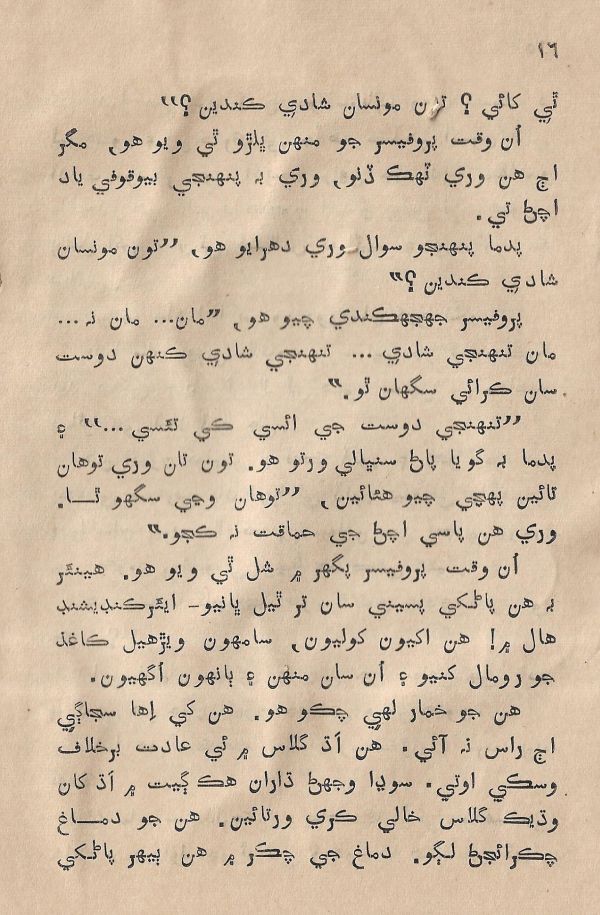 ١٦
ٿي کائي؟ تون مونسان شادي ڪندين؟"
اُن وقت پروفيسر جو منهن ڀلڙو ٿي ويو هو, مگر
اڄ هن وري ٽهڪ ڏنو, وري بہ پنهنجي بيوقوفي ياد
اچڻ تي.
پدما پنهنجو سوال وري دهرايو هو, ”تون مونسان
شادي ڪندين؟“
پروفيسر جهجهڪندي چيو هو, ”مان... مان نہ...
مان تنهنجي شادي... تنهنجي شادي ڪنهن دوست
سان ڪرائي سگهان ٿو.“
”تنهنجي دوست جي ائسي ڪي تئسي...“ ۽
پدما بہ گويا پاڻ سنڀالي ورتو هو. تون تان وري توهان
تائين پهچي چيو هئائين, ”توهان وڃي سگهو ٿا.
وري هن پاسي اچڻ جي حماقت نہ ڪجو.“
اُن وقت پروفيسر پگهر ۾ شل ٿي ويو هو. هينئر
بہ هن پاڻکي پسيني سان تر ٿيل ڀانيو- ايئرڪنڊيشنڊ
هال ۾! هن اکيون کوليون, سامهون ويڙهيل ڪاغذ
جو رومال کنيو ۽ اُن سان منهن ۽ ٻانهون اُگهيون.
هن جو خمار لهي چڪو هو. هن کي اِها سجاڳي
اڄ راس نہ آئي. هن اَڌ گلاس ۾ ئي عادت برخلاف
وسڪي اوتي. سوڊا وجهڻ ڌاران هڪ ڳيت ۾ اَڌ کان
وڌيڪ گلاس خالي ڪري ورتائين. هن جو دماغ
چڪرائجڻ لڳو. دماغ جي چڪر ۾ هن ٻيهر پاڻکي